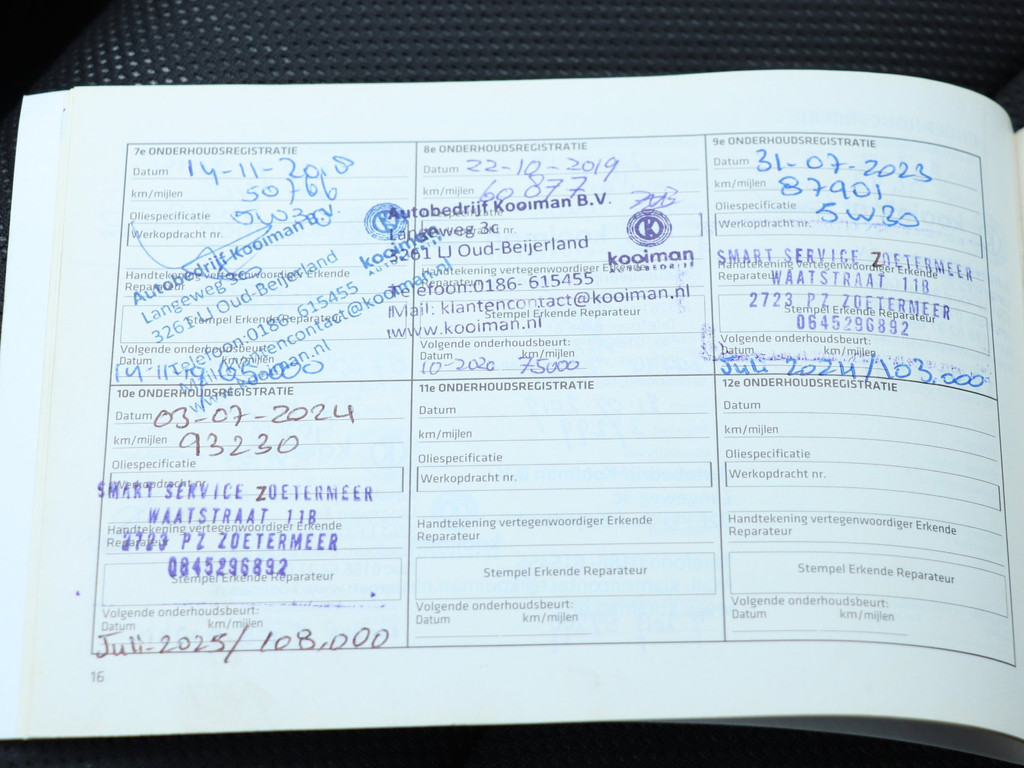 7e ONDERHOUDSREGISTRATIE
Datum 14-11-2018
km/mijlen 50766
Oliespecificatie 5W30
Werkopdracht nr.
Autobedrijf Kooiman B.V.
Langeweg 3c
3261 LJ Oud-Beijerland
Telefoon:0186- 615455
Mail: klantencontact@kooiman.nl
www.kooiman.nl
kooiman
Handtekening vertegenwoordiger Erkende
Reparateur
Stempel Erkende Reparateur
Volgende onderhoudsbeurt:
Datum km/mijlen
8e ONDERHOUDSREGISTRATIE
Datum 22-10-2019
km/mijlen 60877
Autobedrijf Kooiman B.V.
Langeweg 3c
3261 LJ Oud-Beijerland
kooiman
AUTOBEDRIJF
Handtekening vertegenwoordiger Erkende
Telefoon:0186- 615455
Mail: klantencontact@kooiman.nl
Stempel Erkende Reparateur
www.kooiman.nl
Volgende onderhoudsbeurt:
Datum km/mijlen
10-2020 75000
9e ONDERHOUDSREGISTRATIE
Datum 31-07-2023
km/mijlen 87901
Oliespecificatie 5W30
Werkopdracht nr.
SMART SERVICE ZOETERMEER
Handtekening vertegenwoordiger Erkende
Reparateur
WAATSTRAAT 11B
2723 PZ ZOETERMEER
Stempel Erkende Reparateur
0645296892
Volgende onderhoudsbeurt:
Datum km/mijlen
Juli 2024/103.000
10e ONDERHOUDSREGISTRATIE
Datum 03-07-2024
km/mijlen 93230
Oliespecificatie
Werkopdracht nr.
SMART SERVICE ZOETERMEER
WAATSTRAAT 11B
Handtekening vertegenwoordiger Erkende
Reparateur
2723 PZ ZOETERMEER
0645296892
Stempel Erkende Reparateur
Volgende onderhoudsbeurt:
Datum km/mijlen
Juli-2025/108.000
11e ONDERHOUDSREGISTRATIE
Datum
km/mijlen
Oliespecificatie
Werkopdracht nr.
Handtekening vertegenwoordiger Erkende
Reparateur
Stempel Erkende Reparateur
Volgende onderhoudsbeurt:
Datum km/mijlen
12e ONDERHOUDSREGISTRATIE
Datum
km/mijlen
Oliespecificatie
Werkopdracht nr.
Handtekening vertegenwoordiger Erkende
Reparateur
Stempel Erkende Reparateur
Volgende onderhoudsbeurt:
Datum km/mijlen
16